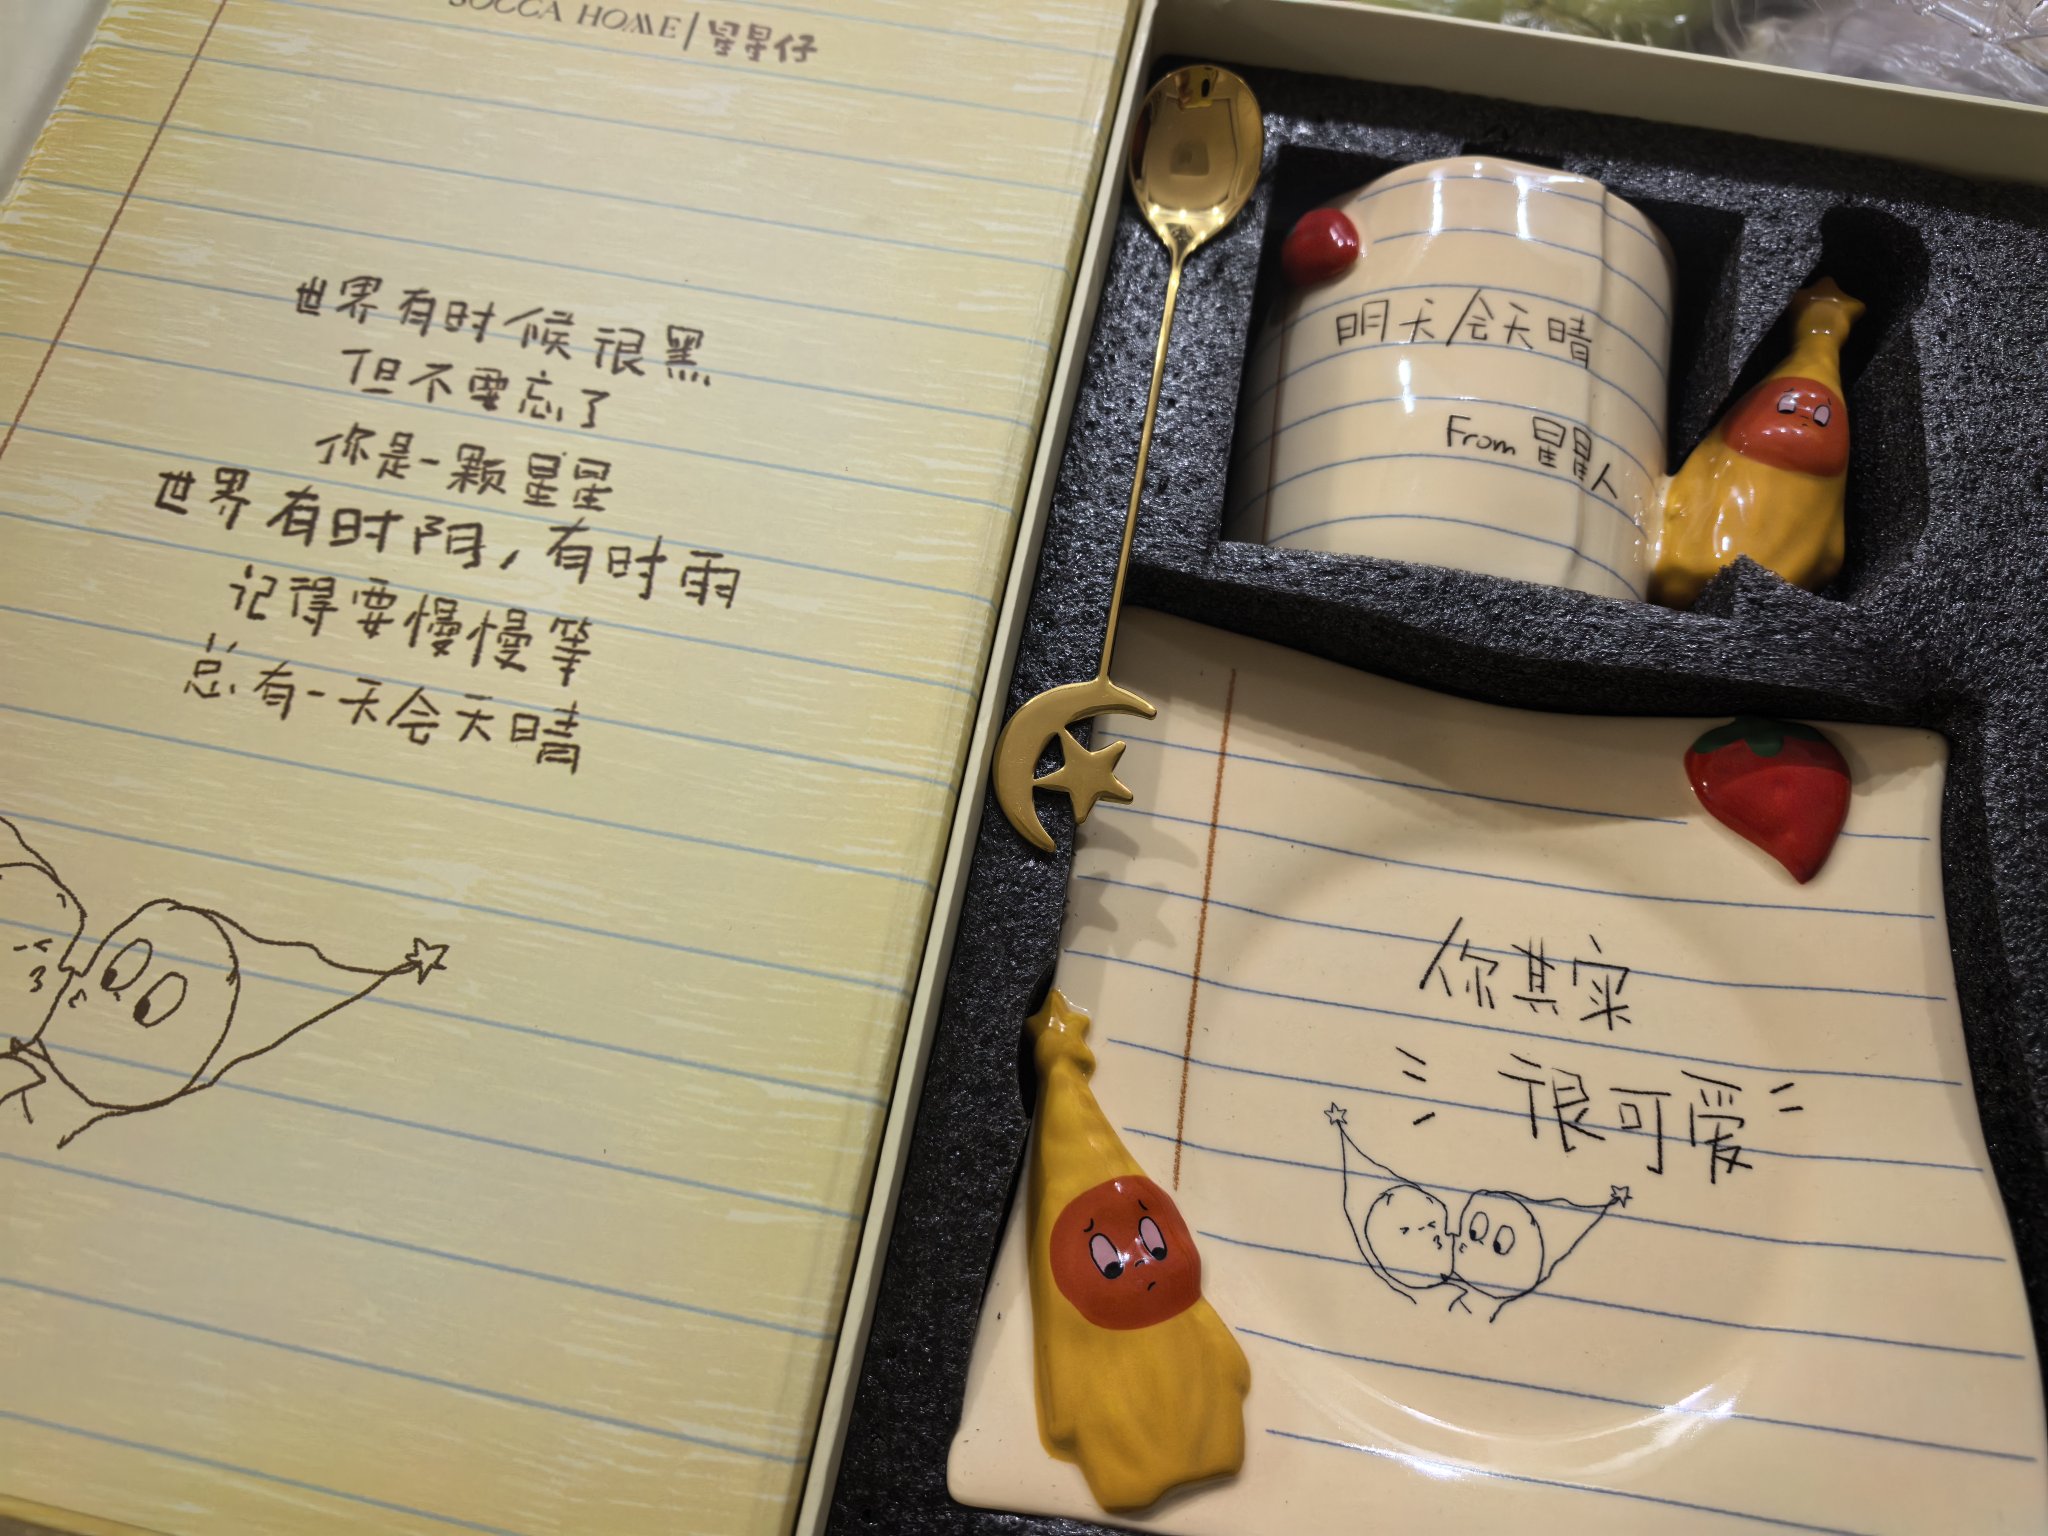 SOCCA HOME | 星星仔
世界有时候很黑
但不要忘了
你是一颗星星
世界有时阴，有时雨
记得要慢慢等
总有一天会天晴
明天会天晴
From 星星人
你其实
很可爱